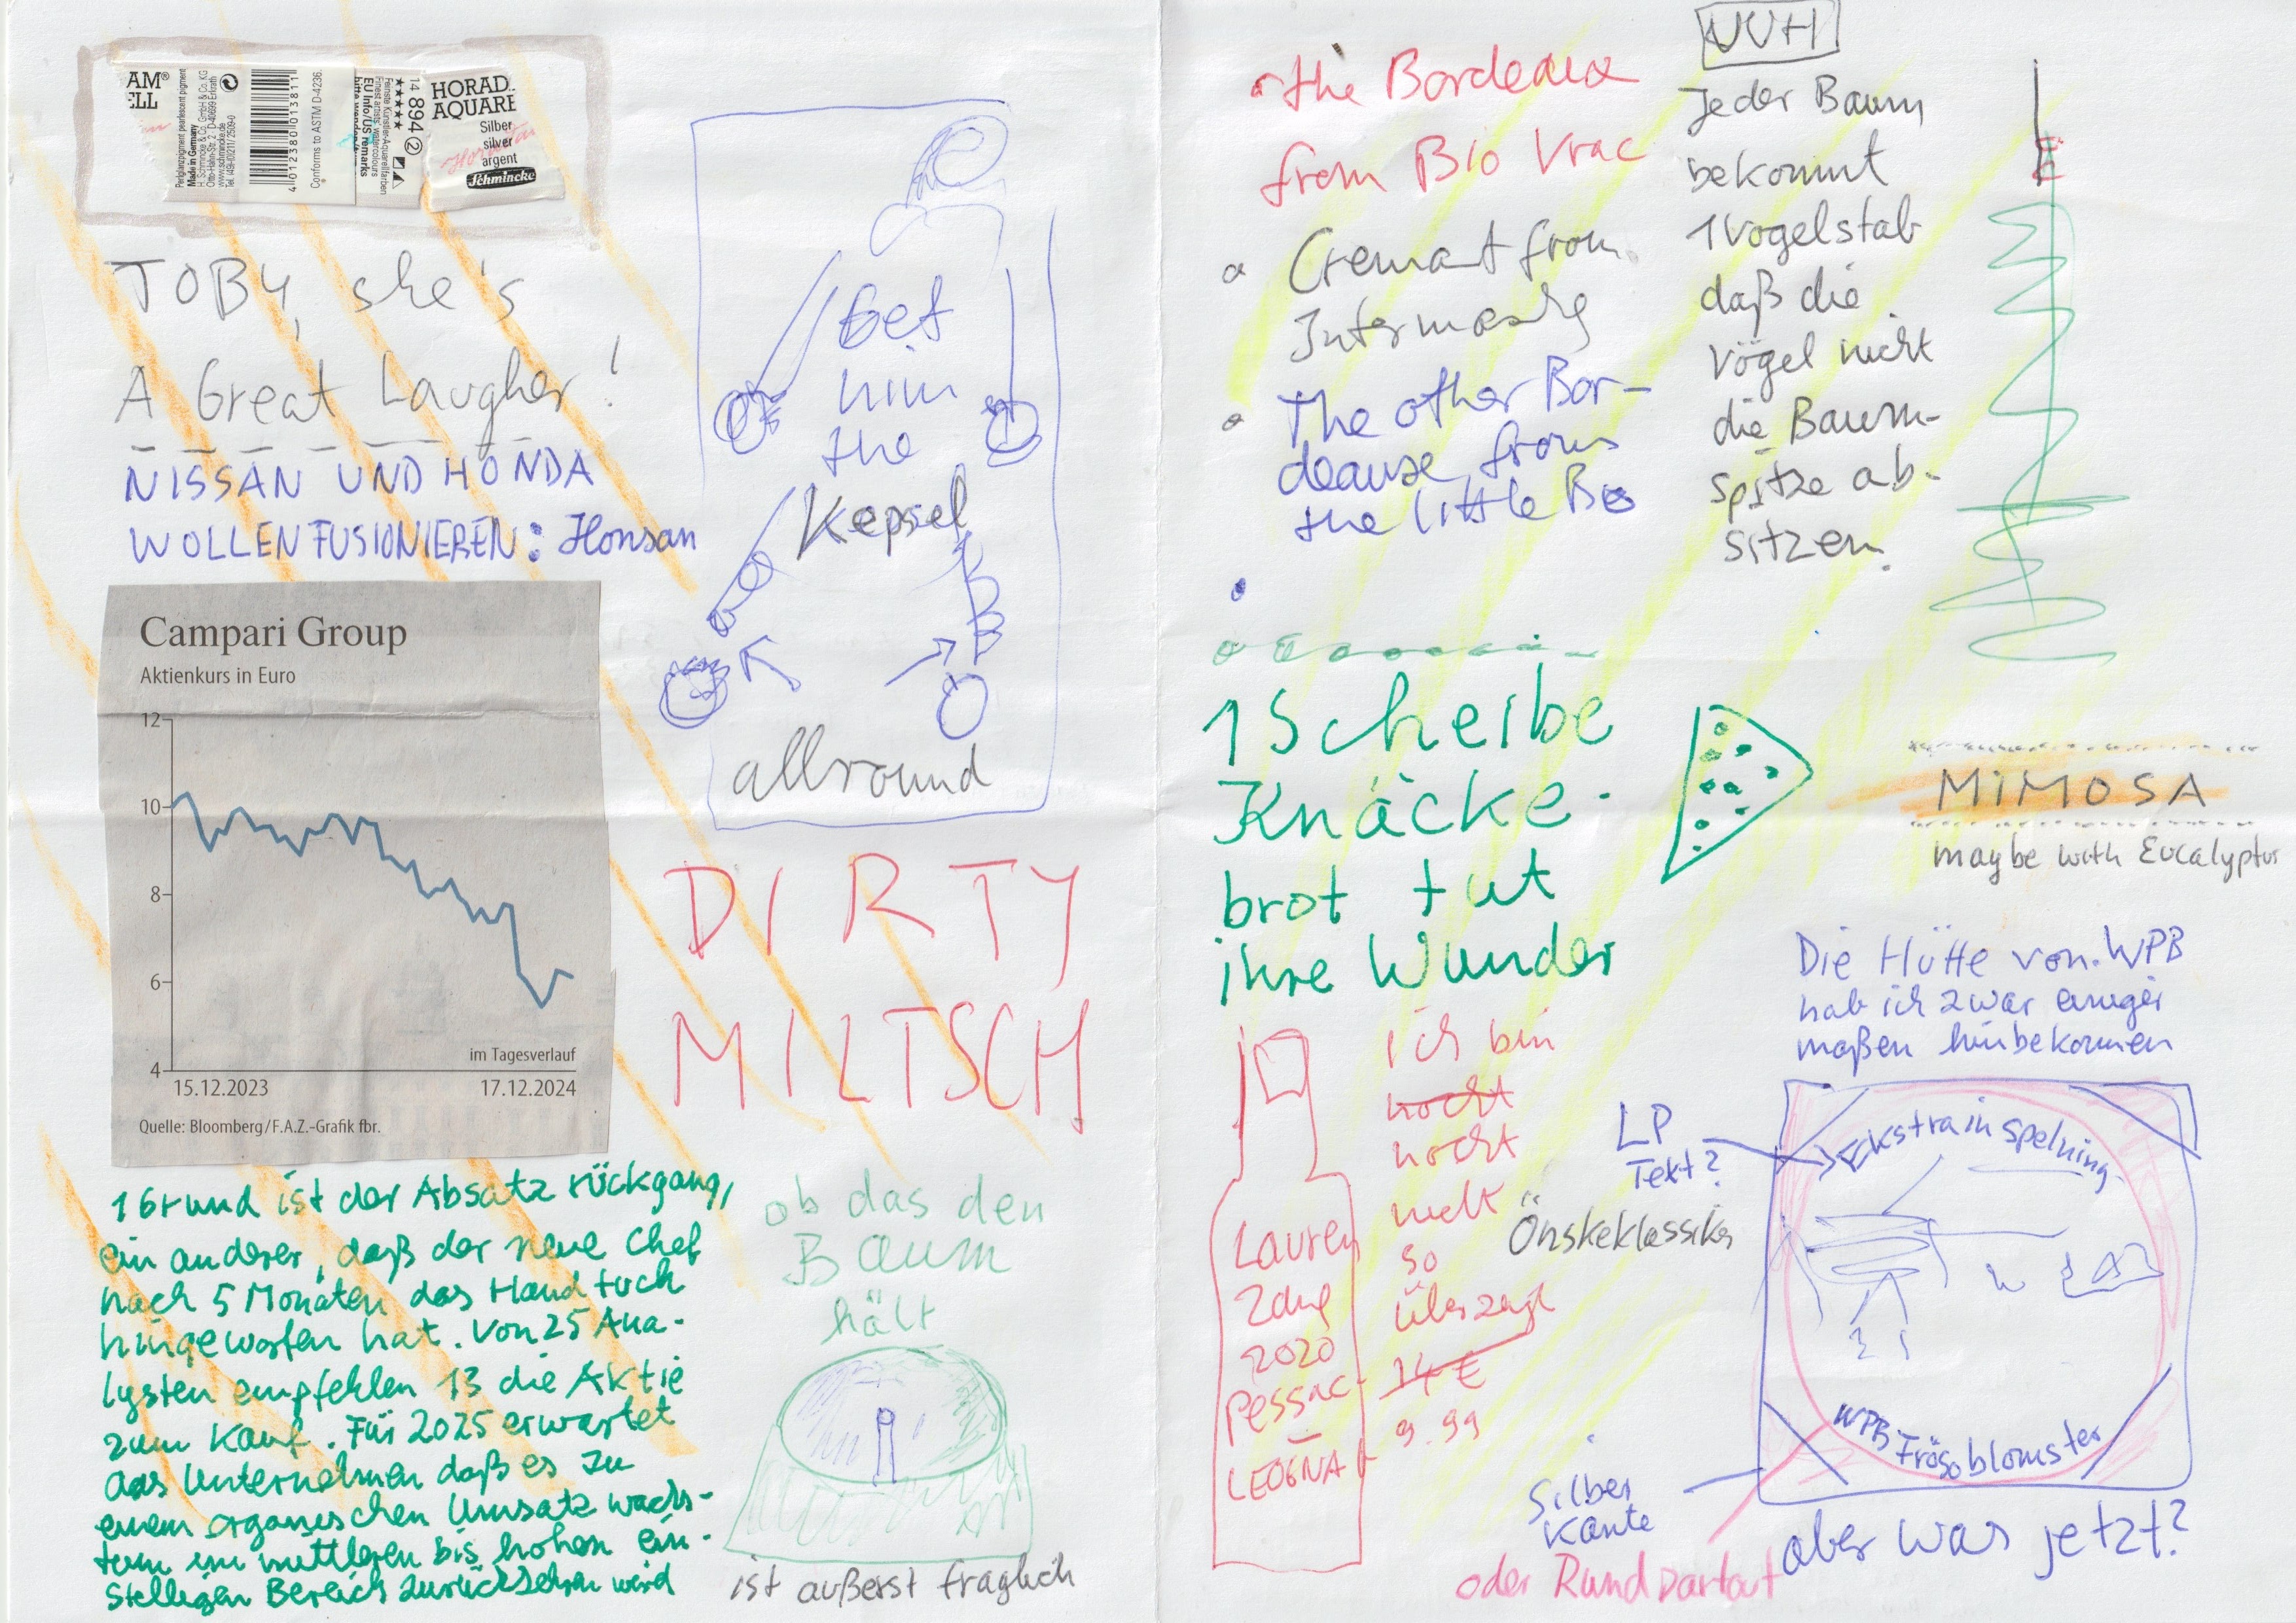 AM®
ELL
Perlglanzpigment pearlescent pigment
Made in Germany
H. Schmincke & Co. GmbH & Co. KG
Otto-Hahn-Str. 2, D-40699 Erkrath
www.schmincke.de
Tel. (49)-(0)211/ 2509-0
4 012380 013811
Conforms to ASTM D-4236.
EU Info/US remarks
bitte wenden
Feinste Künstler-Aquarellfarben
Finest artists' watercolours
★★★★★
14 894 ②
HORAD
AQUARE
Silber
silver
argent
Schmincke
TOBY, she's
A Great Laugher!
NISSAN UND HONDA
WOLLEN FUSIONIEREN: Honsan
Campari Group
Aktienkurs in Euro
12
10
8
6
4
im Tagesverlauf
15.12.2023 17.12.2024
Quelle: Bloomberg/F.A.Z.-Grafik fbr.
1 Grund ist der Absatz rückgang,
ein anderer, daß der neue Chef
nach 5 Monaten das Hand tuch
hingeworfen hat. Von 25 Ana-
lysten empfehlen 13 die Aktie
zum Kauf. Für 2025 erwartet
das Unternehmen daß es zu
einem organischen Umsatz wachs-
tum im mittleren bis hohen ein-
stelligen Bereich zurückkehren wird
Get
him
the
Kepsel
allround
DIRTY
MILTSCH
ob das den
Baum
hält
ist äußerst fraglich
the Bordeaux
from Bio Vrac
Cremant from
Intermarche
The other Bor-
deause from
the little Bio
1 Scheibe
Knäcke-
brot tut
ihre Wunder
Lauren
2020
PESSAC-
LEOGNA
ich bin
nocht
nocht
nicht
so
überzeugt
14 €
9.99
UUH
Jeder Baum
bekommt
1 Vogelstab
daß die
Vögel nicht
die Baum-
spitze ab-
sitzen.
MIMOSA
maybe with Eucalyptus
Die Hütte von WPB
hab ich zwar einiger
maßen hinbekommen
LP
Text?
Önskeklassiker
Ekstra in spelning
WPB
Frösöblomster
Silber
Kante
oder Rund Partout
aber was jetzt?